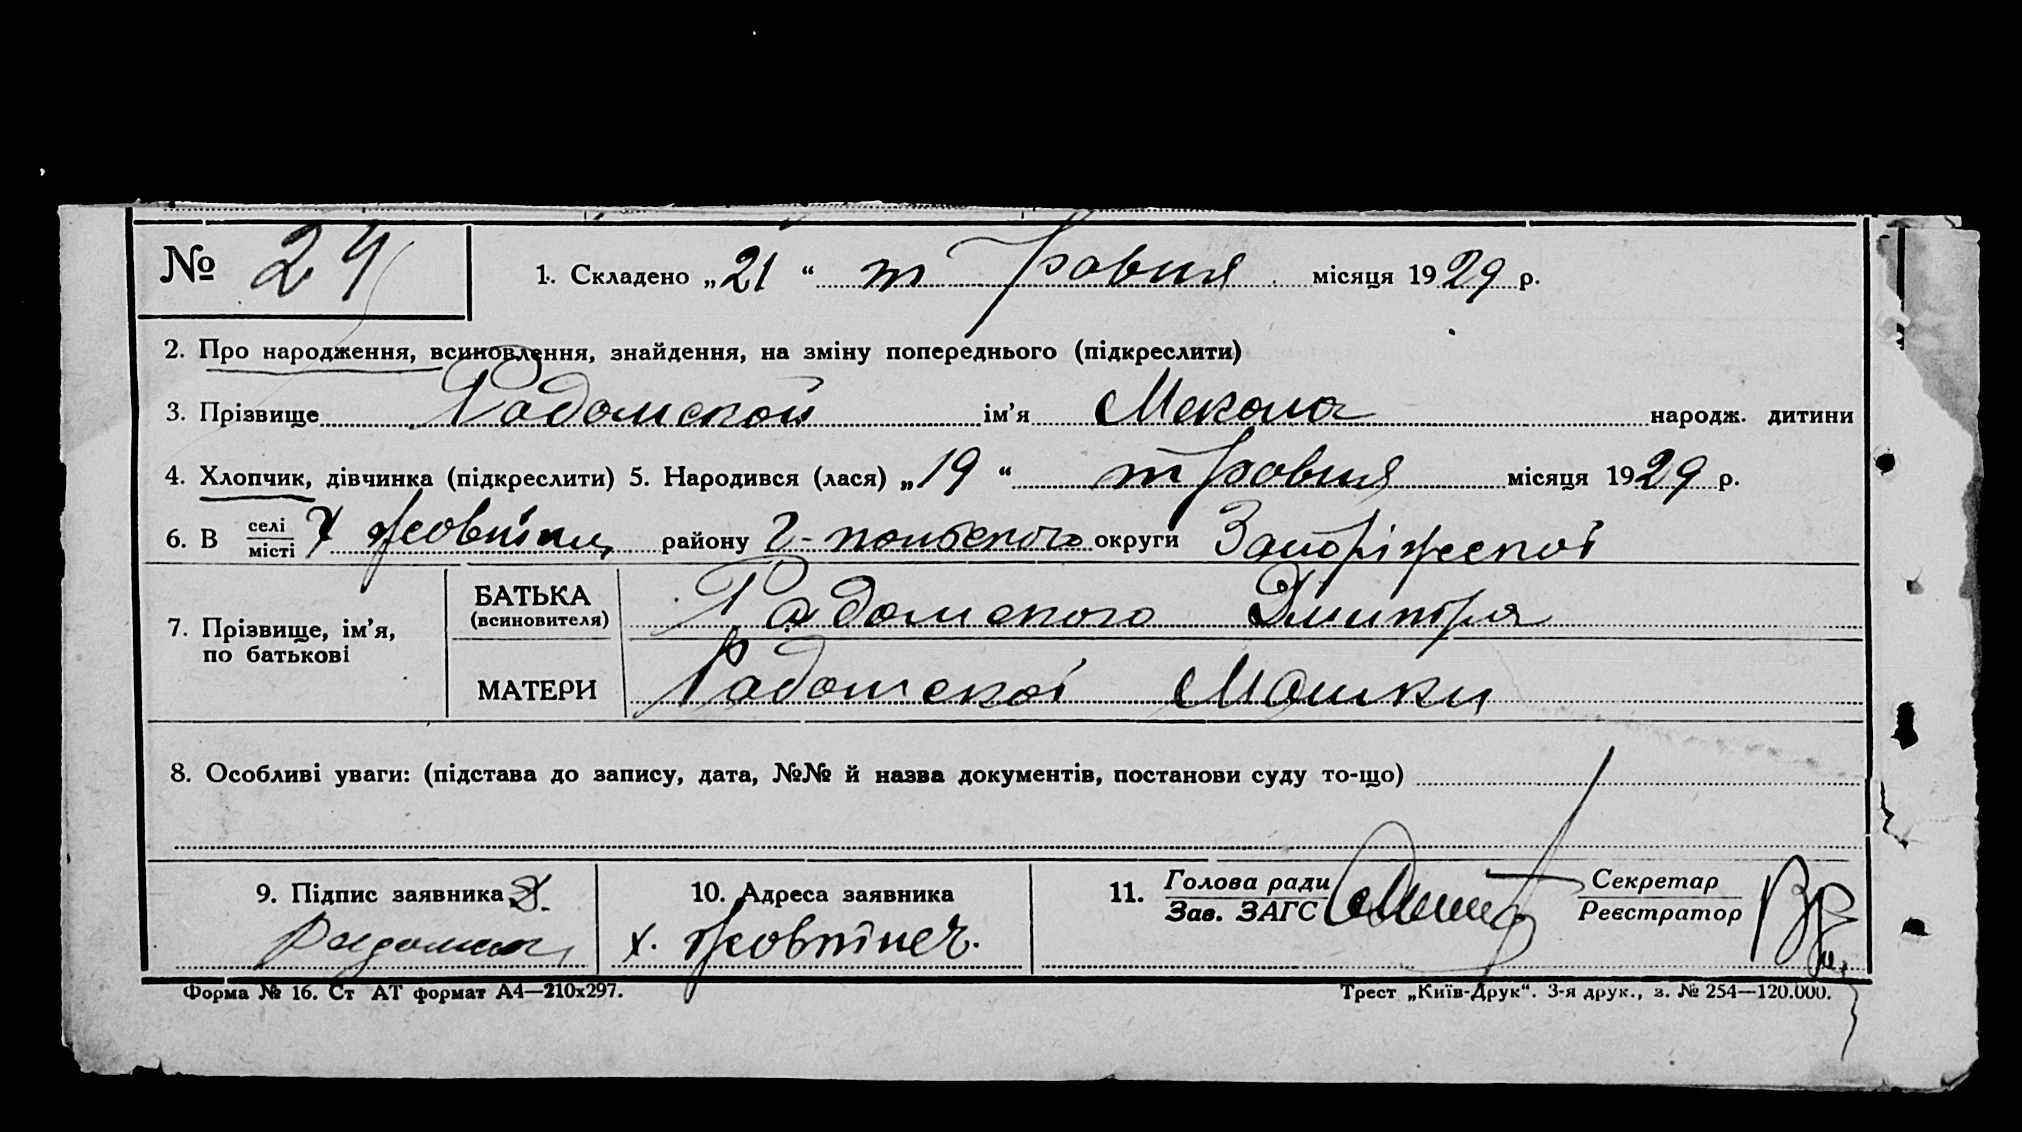 № 24
1. Складено „21“ травня місяця 1929 р.
2. Про народження, всиновлення, знайдення, на зміну попереднього (підкреслити)
3. Прізвище Радомской ім’я Мекола народж. дитини
4. Хлопчик, дівчинка (підкреслити) 5. Народився (лася) „19“ травня місяця 1929 р.
6. В селі/місті району округи Запоріжскої
7. Прізвище, ім’я, по батькові
БАТЬКА (всиновителя) Радомского Дмитря
МАТЕРИ Радомскої
8. Особливі уваги: (підстава до запису, дата, №№ й назва документів, постанови суду то-що)
9. Підпис заявника
10. Адреса заявника
х. Жовтнеч.
11. Голова ради
Зав. ЗАГС
Секретар
Реєстратор
Форма № 16. Ст АТ формат А4—210х297.
Трест „Київ-Друк“. 3-я друк., з. № 254—120.000.